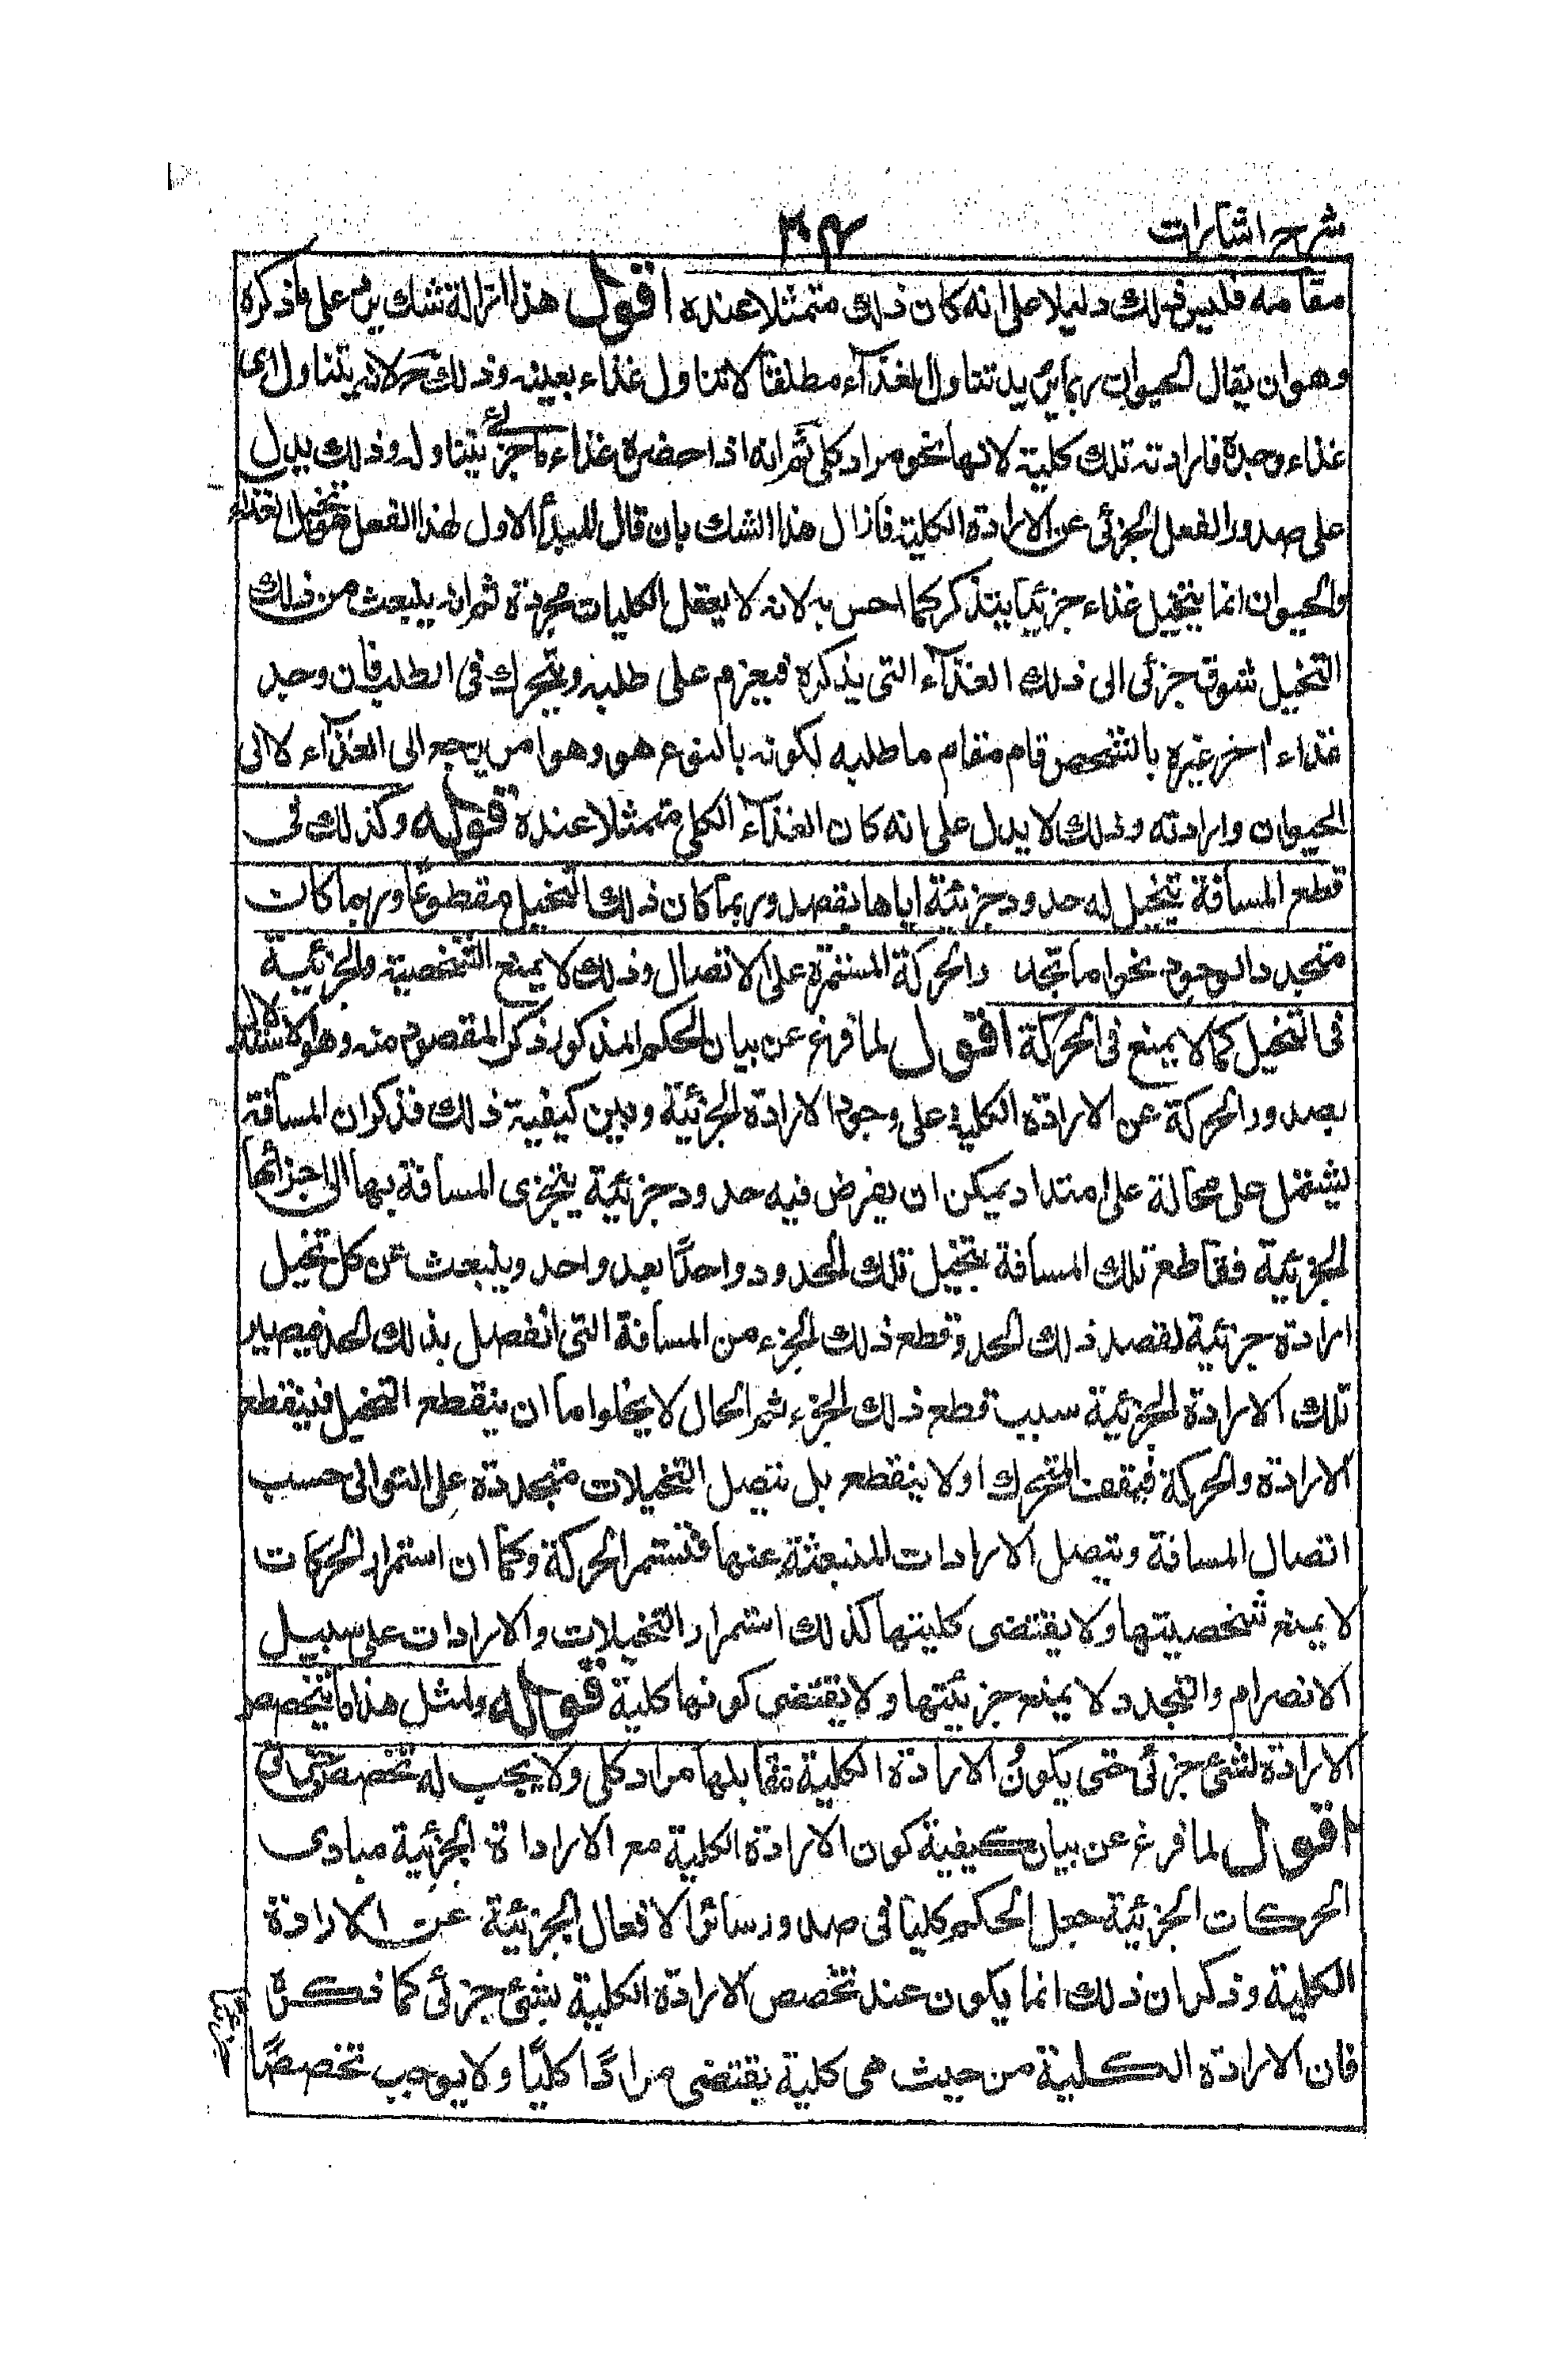 شرح اشارات
مقامه فليس ذلك دليلا على انه كان ذلك متمثلا عنده اقول هذا ازالة شك يرد على ما ذكره
وهو ان يقال الحيوان ربما يريد تناول الغذاء مطلقا لا تناول غذاء بعينه وذلك لانه يتناول اى
غذاء وجده فارادته تلك كلية لانها نحو مراد كلى ثم انه اذا حضره غذاء ما جزئى يتناوله وذلك يدل
على صدور الفعل الجزئى عن الارادة الكلية فازال هذا الشك بان قال المبدأ الاول لهذا الفعل هو تخيل الغذاء
والحيوان انما يتخيل غذاء جزئيا يتذكر كما احس به لانه لا يعقل الكليات مجردة ثم انه ينبعث من ذلك
التخيل شوق جزئى الى ذلك الغذاء التى يذكره فيعزم على طلبه ويتحرك فى الطلب فان وجد
غذاء اخر غيره بالشخص قام مقام ما طلبه لكونه بالنوع هو وهو امر يرجع الى الغذاء لا الى
الحيوان وارادته وذلك لا يدل على انه كان الغذاء الكلى متمثلا عنده قوله وكذلك فى
قطع المسافة يتخيل له حدود جزئية اياها يقصد وربما كان ذلك التخيل مقطوعا وربما كان
متجدد الوجود نحوا ما تجدد الحركة المستمرة على الاتصال وذلك لا يمنع الشخصية والجزئية
فى التخيل كما لا يمنع فى الحركة اقول لما فرغ عن بيان الحكم المذكور ذكر المقصود منه وهو الاستدلال
بصدور الحركة عن الارادة الكلية على وجود الارادة الجزئية وبين كيفية ذلك فذكر ان المسافة
يشتمل على محالة على امتداد يمكن ان يفرض فيه حدود جزئية يتجزى المسافة بها الى اجزائها
الجزئية فقاطع تلك المسافة يتخيل تلك الحدود واحدًا بعد واحد وينبعث عن كل تخيل
ارادة جزئية لقصد ذلك الحد وقطع ذلك الجزء من المسافة التى انفصل بذلك الحد فيصير
تلك الارادة الجزئية سبب قطع ذلك الجزء ثم الحال لا يخلوا ما ان ينقطع التخيل فينقطع
الارادة والحركة فيقف المتحرك او لا ينقطع بل يتصل التخيلات متجددة على التوالى حسب
اتصال المسافة ويتصل الارادات المنبعثة عنها فتستمر الحركة وكما ان استمرار الحركات
لا يمنع شخصيتها ولا يقتضى كليتها كذلك استمرار التخيلات والارادات على سبيل
الانصرام والتجدد لا يمنع جزئيتها ولا يقتضى كونها كلية قوله ولمثل هذا ما يتخصص
الارادة لشئ جزئى حتى يكون الارادة الكلية مقابلها مراد كلى ولا يجب له تخصص جزئى
اقول لما فرغ عن بيان كيفية كون الارادة الكلية مع الاراداة الجزئية مبادى
الحركات الجزئية جعل الحكم كليا فى صدور سائر الافعال الجزئية عن الارادة
الكلية وذكر ان ذلك انما يكون عند تخصص الارادة الكلية بشئ جزئى كما ذكره
فان الارادة الكلية من حيث هى كلية يقتضى مرادًا كليًا ولا يوجب تخصصًا